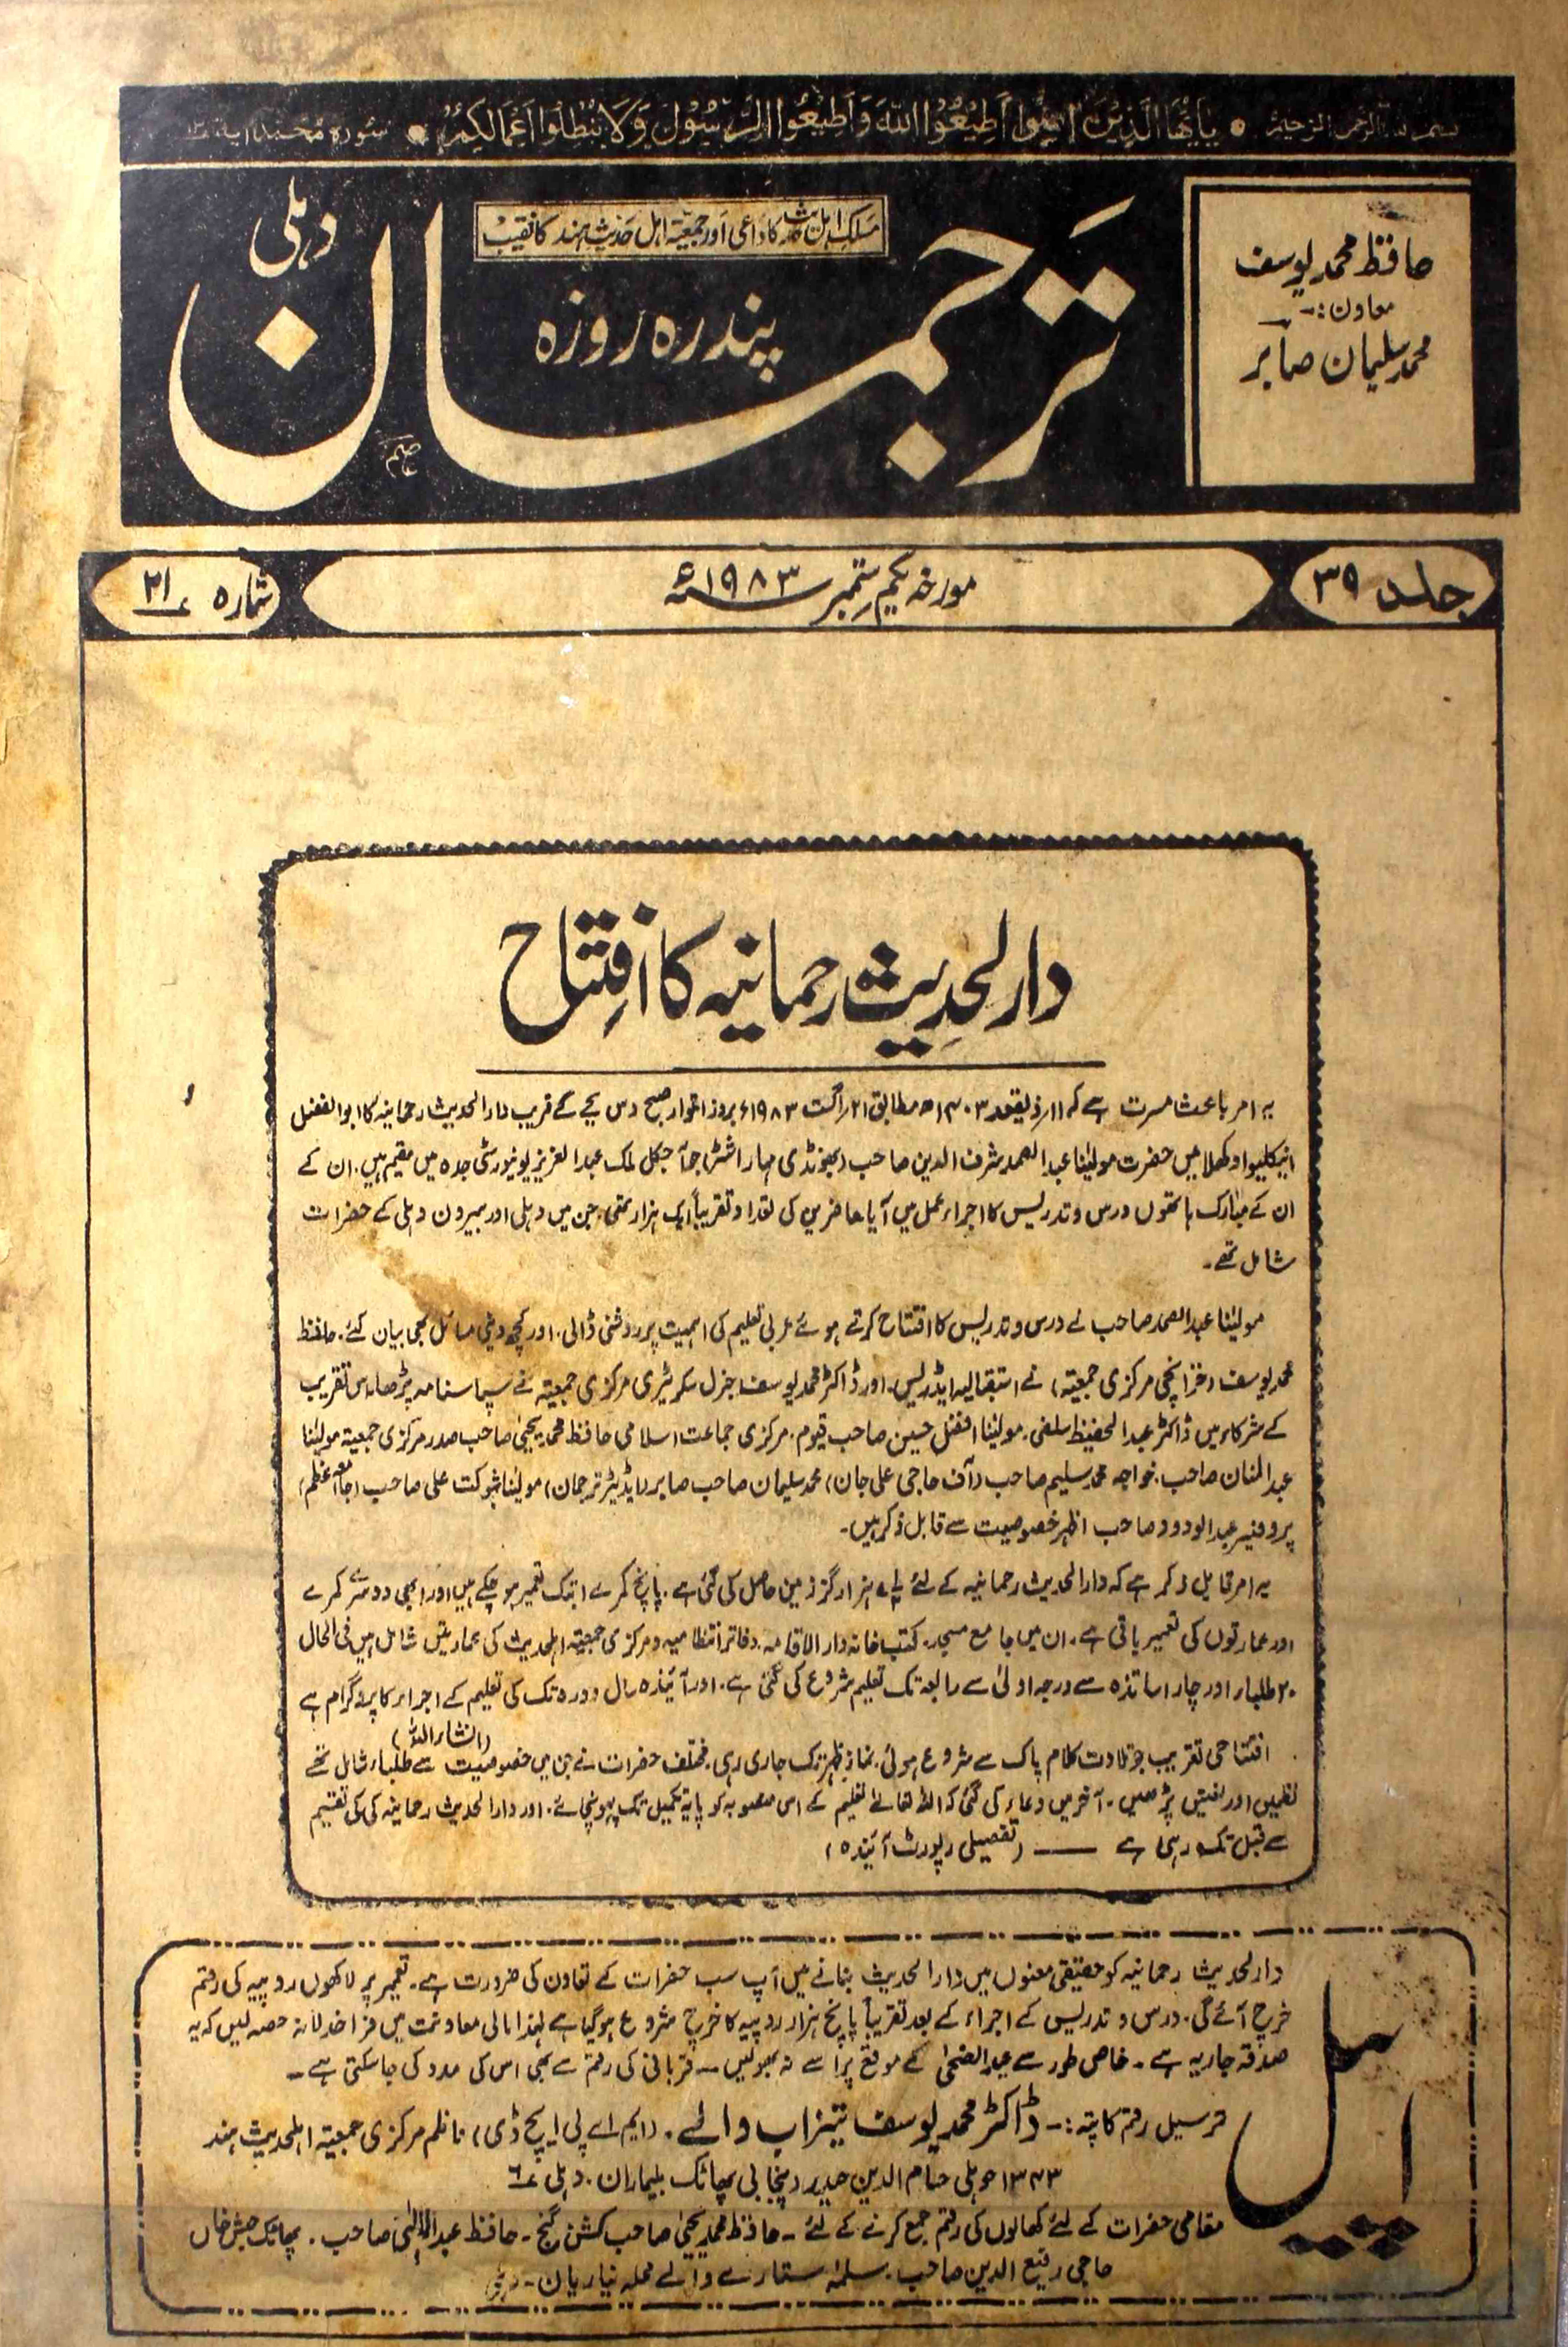 بسم اللہ الرحمن الرحیم ● يٰٓاَيُّهَا الَّذِيْنَ اٰمَنُوْا اَطِيْعُوا اللّٰهَ وَاَطِيْعُوا الرَّسُوْلَ وَلَا تُبْطِلُوْا اَعْمَالَكُمْ ● سورہ محمد آیة
حافظ محمد یوسف
معاون :-
محمد سلیمان صابر
مسلک اہل حدیث کا داعی اور جمعیۃ اہل حدیث ہند کا نقیب
ترجمان
دہلی
پندرہ روزہ
جلد ۳۹
مورخہ یکم ستمبر ۱۹۸۳ء
شمارہ ۲۱
دارالحدیث رحمانیہ کا افتتاح
یہ امر باعث مسرت ہے کہ ۱۱ر ذیقعدہ ۱۴۰۳ھ مطابق ۲۱ر اگست ۱۹۸۳ء بروز اتوار صبح دس بجے کے قریب دارالحدیث رحمانیہ کا ابوالفضل
انیکلیو اوکھلا میں حضرت مولینا عبدالصمد شرف الدین صاحب (بھونڈی مہاراشٹر) جو آجکل ملک عبدالعزیز یونیورسٹی جدہ میں مقیم ہیں، ان کے
ان کے مبارک ہاتھوں درس و تدریس کا اجراء عمل میں آیا حاضرین کی تعداد تقریباً ایک ہزار تھی، جن میں دہلی اور بیرون دہلی کے حضرات
شامل تھے۔
مولینا عبدالصمد صاحب نے درس و تدریس کا افتتاح کرتے ہوئے عربی تعلیم کی اہمیت پر روشنی ڈالی۔ اور کچھ دینی مسائل بھی بیان کئے۔ حافظ
محمد یوسف (خزانچی مرکزی جمعیۃ) نے استقبالیہ ایڈریس اور ڈاکٹر محمد یوسف جنرل سکریٹری مرکزی جمعیۃ نے سپاسنامہ پڑھا۔ اس تقریب
کے شرکاء میں ڈاکٹر عبدالحفیظ سلفی، مولینا افضل حسین صاحب قیوم۔ مرکزی جماعت اسلامی حافظ محمد یحییٰ صاحب صدر مرکزی جمعیۃ مولینا
عبدالمنان صاحب، خواجہ محمد سلیم صاحب (آف حاجی علی جان) محمد سلیمان صاحب صابر (ایڈیٹر ترجمان) مولینا شوکت علی صاحب (جامعہ اعظم)
پروفیسر عبدالودود صاحب اظہر خصوصیت سے قابل ذکر ہیں۔
یہ امر قابل ذکر ہے کہ دارالحدیث رحمانیہ کے لئے ہزار گز زمین حاصل کی گئی ہے۔ پانچ کمرے ابتک تعمیر ہو چکے ہیں اور ابھی دوسرے کمرے
اور عمارتوں کی تعمیر باقی ہے۔ ان میں جامع مسجد، کتب خانہ دار الاقامہ، دفاتر انتظامیہ و مرکزی جمعیۃ اہلحدیث کی عمارتیں شامل ہیں فی الحال
۲۰ طلباء اور چار اساتذہ سے درجہ اولیٰ سے رابعہ تک تعلیم شروع کی گئی ہے۔ اور آئندہ سال دورہ تک کی تعلیم کے اجراء کا پروگرام ہے
(انشاء اللہ)
افتتاحی تقریب جو تلاوت کلام پاک سے شروع ہوئی نماز ظہر تک جاری رہی۔ مختلف حضرات نے جن میں خصوصیت سے طلباء شامل تھے
نظمیں اور نعتیں پڑھیں۔ آخر میں دعاء کی گئی کہ اللہ تعالےٰ تعلیم کے اس منصوبہ کو پایہ تکمیل تک پہونچائے۔ اور دارالحدیث رحمانیہ کی کی تقسیم
سے قبل تک رہی ہے —— (تفصیلی رپورٹ آئندہ)
اپیل
دارالحدیث رحمانیہ کو حقیقی معنوں میں دارالحدیث بنانے میں آپ سب حضرات کے تعاون کی ضرورت ہے۔ تعمیر پر لاکھوں روپیہ کی رقم
خرچ آئے گی۔ درس و تدریس کے اجراء کے بعد تقریباً پانچ ہزار روپیہ کا خرچ شروع ہوگیا ہے لہٰذا مالی معاونت میں فراخدلانہ حصہ لیں کہ یہ
صدقہ جاریہ ہے۔ خاص طور سے عیدالضحیٰ کے موقع پر اسے نہ بھولیں۔ قربانی کی رقم سے بھی اس کی مدد کی جاسکتی ہے۔
ترسیل رقم کا پتہ :- ڈاکٹر محمد یوسف تیزاب والے۔ (ایم اے پی ایچ ڈی) ناظم مرکزی جمعیۃ اہلحدیث ہند
۱۳۴۳ حویلی حسام الدین حیدر پنجابی پھاٹک بلیماران۔ دہلی ۶
مقامی حضرات کے لئے کھالوں کی رقم جمع کرنے کے لئے۔ حافظ محمد یحییٰ صاحب کشن گنج۔ حافظ صاحب۔ پھاٹک حبش خاں
حاجی رفیع الدین صاحب۔ سلمہ ستارے والے محلہ نیاریان۔ دہلی